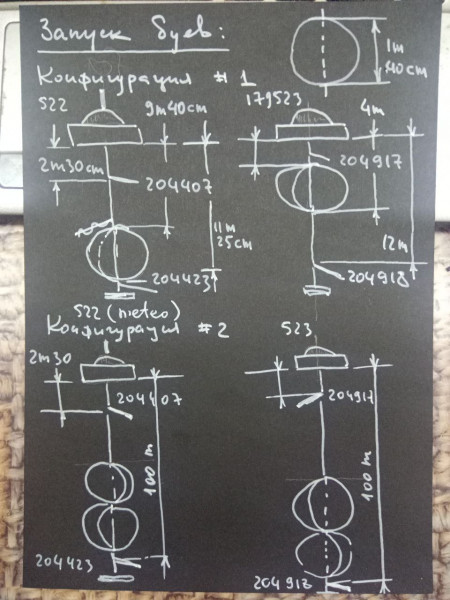 Запуск буев:
1m
40cm
Конфигурация #1
522
9m40cm
179523
4m
2m30cm
204407
204917
11m
25cm
12m
204423
204918
522 (meteo)
Конфигурация #2
523
2m30
204407
204917
100 m
100 m
204423
204918